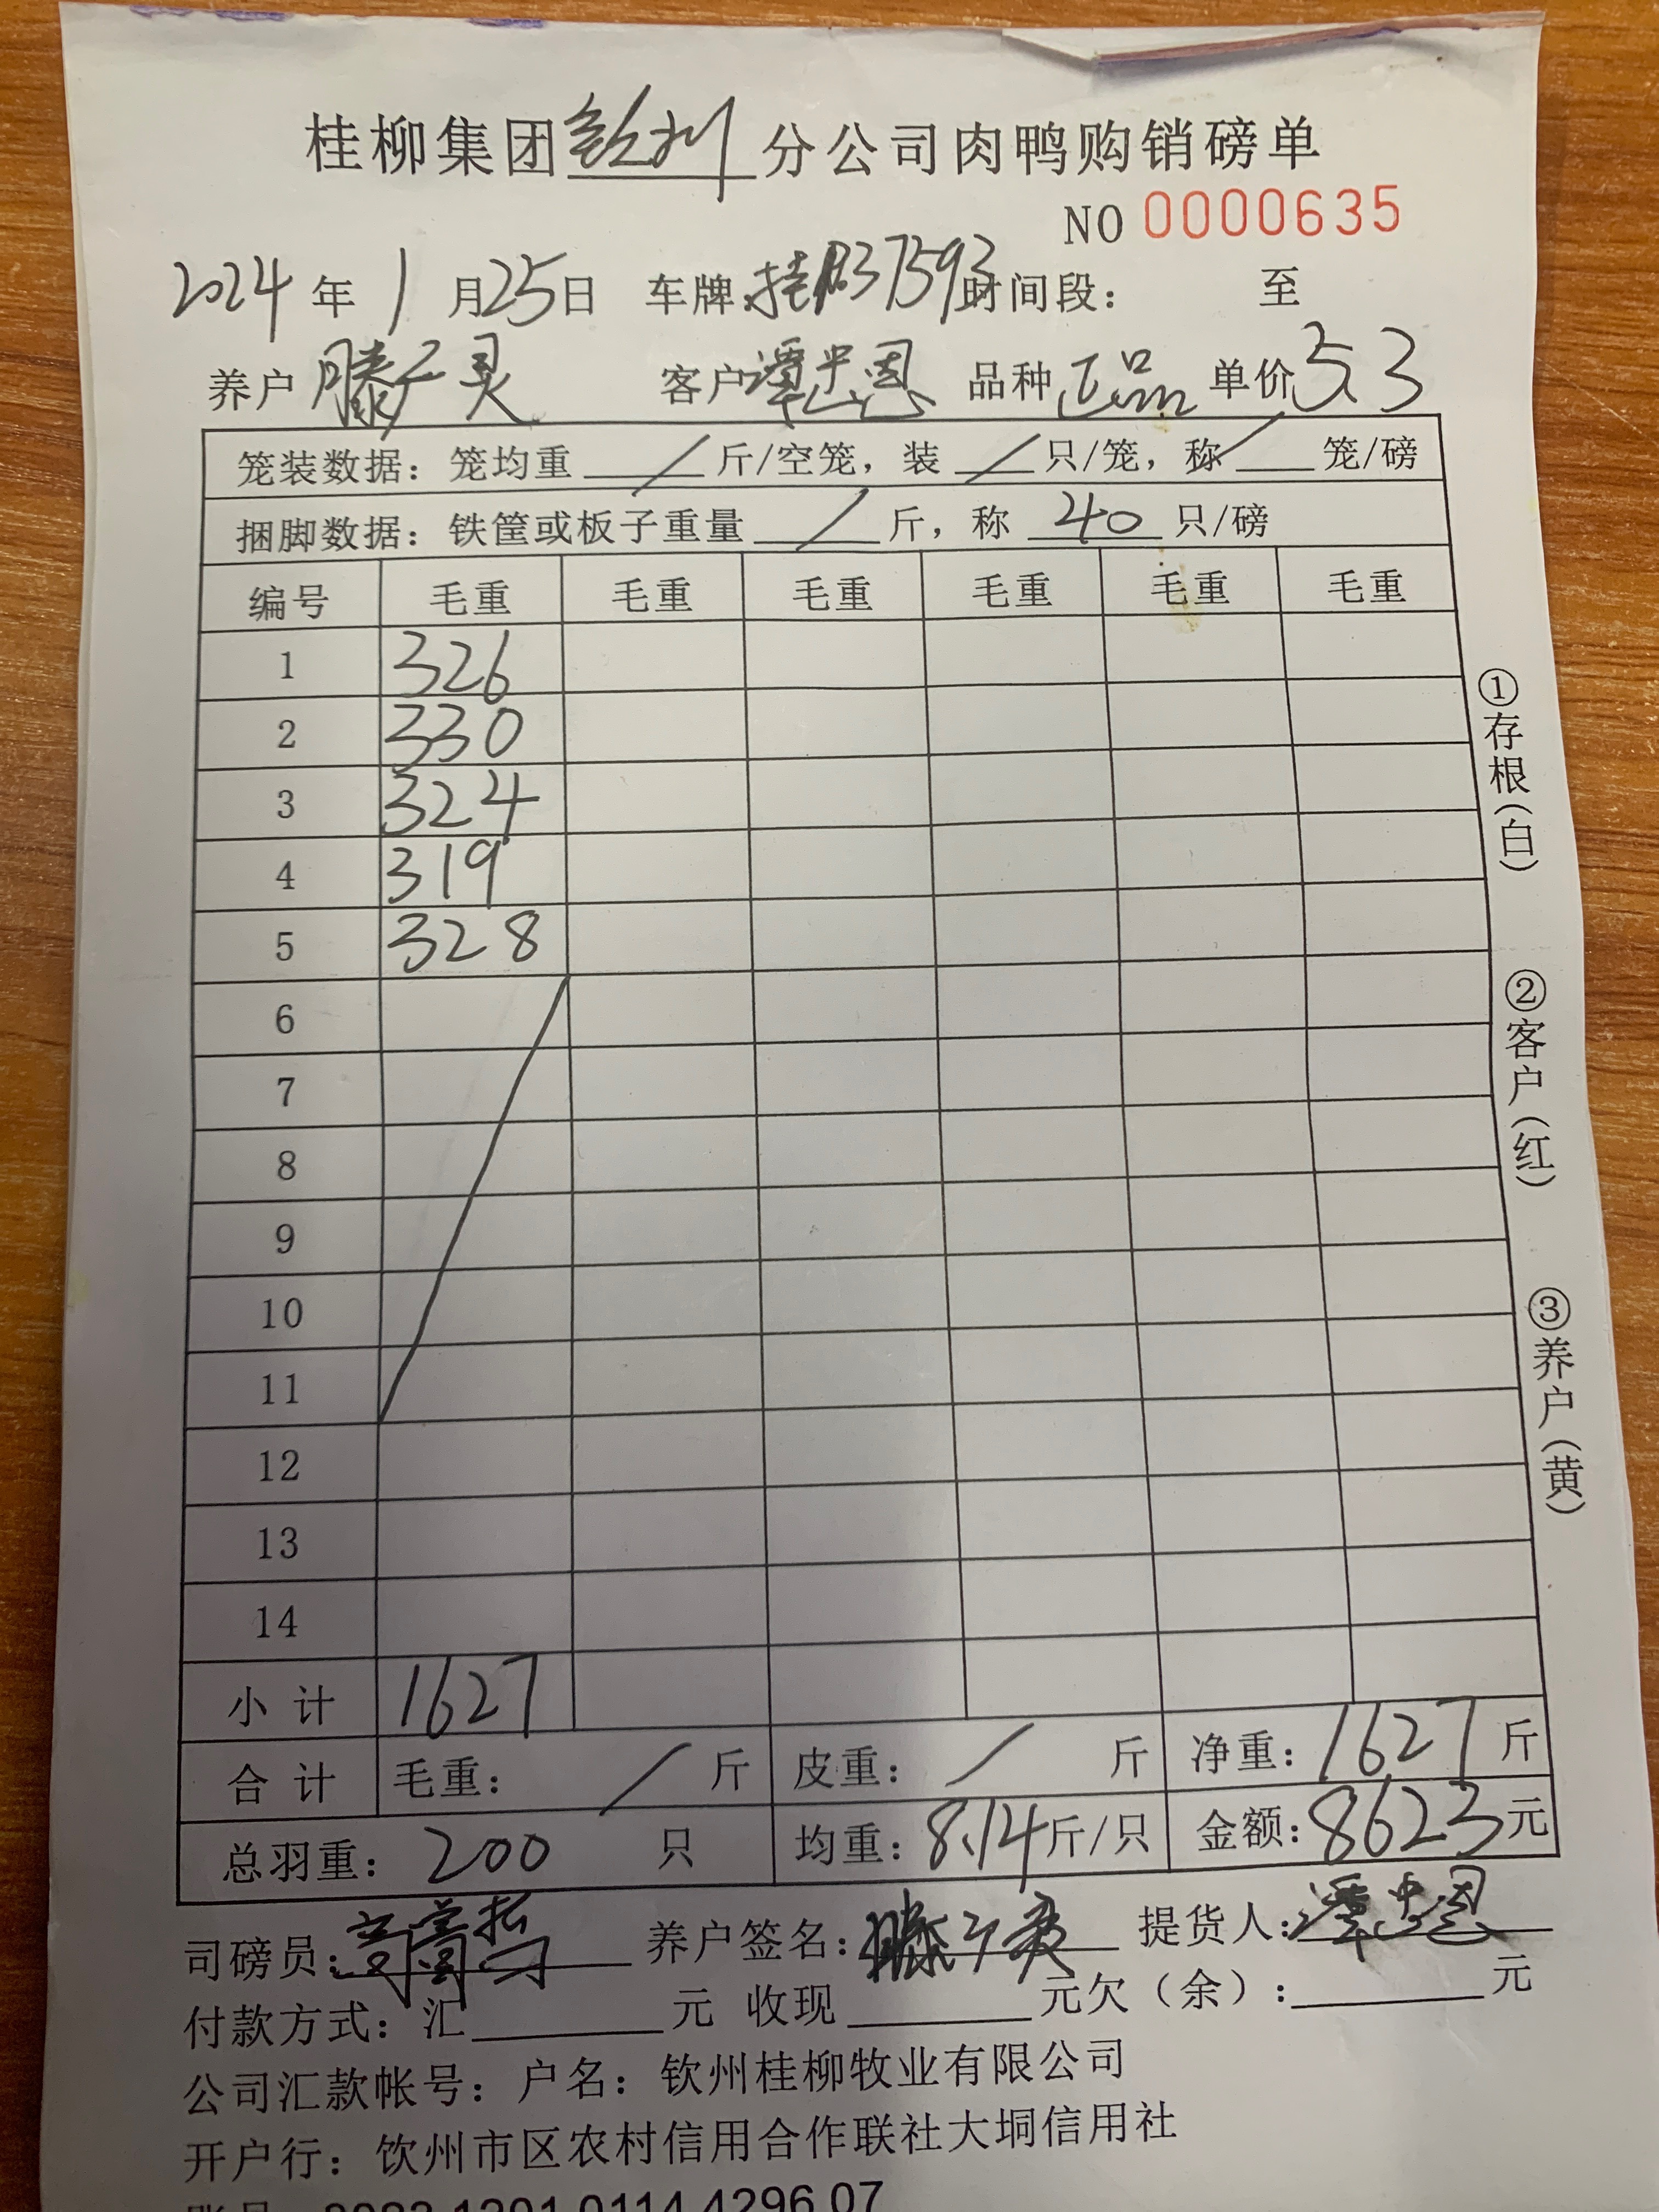 桂柳集团钦州分公司肉鸭购销磅单
NO 0000635
2024 年 1 月 25 日 车牌:桂 37593 时间段: 至
养户 滕广灵 客户 谭忠恩 品种 正品 单价 5.3
笼装数据: 笼均重 / 斤/空笼, 装 / 只/笼, 称 / 笼/磅
捆脚数据: 铁筐或板子重量 / 斤, 称 40 只/磅
编号 毛重 毛重 毛重 毛重 毛重 毛重
1 326
2 330
3 324
4 319
5 328
6
7
8
9
10
11
12
13
14
小计 1627
合计 毛重: / 斤 皮重: / 斤 净重: 1627 斤
总羽重: 200 只 均重: 8.14 斤/只 金额: 8623 元
司磅员: 养户签名: 滕广灵 提货人: 谭忠恩
付款方式: 汇 元 收现 元欠(余): 元
公司汇款帐号: 户名: 钦州桂柳牧业有限公司
开户行: 钦州市区农村信用合作联社大垌信用社
①存根(白)
②客户(红)
③养户(黄)